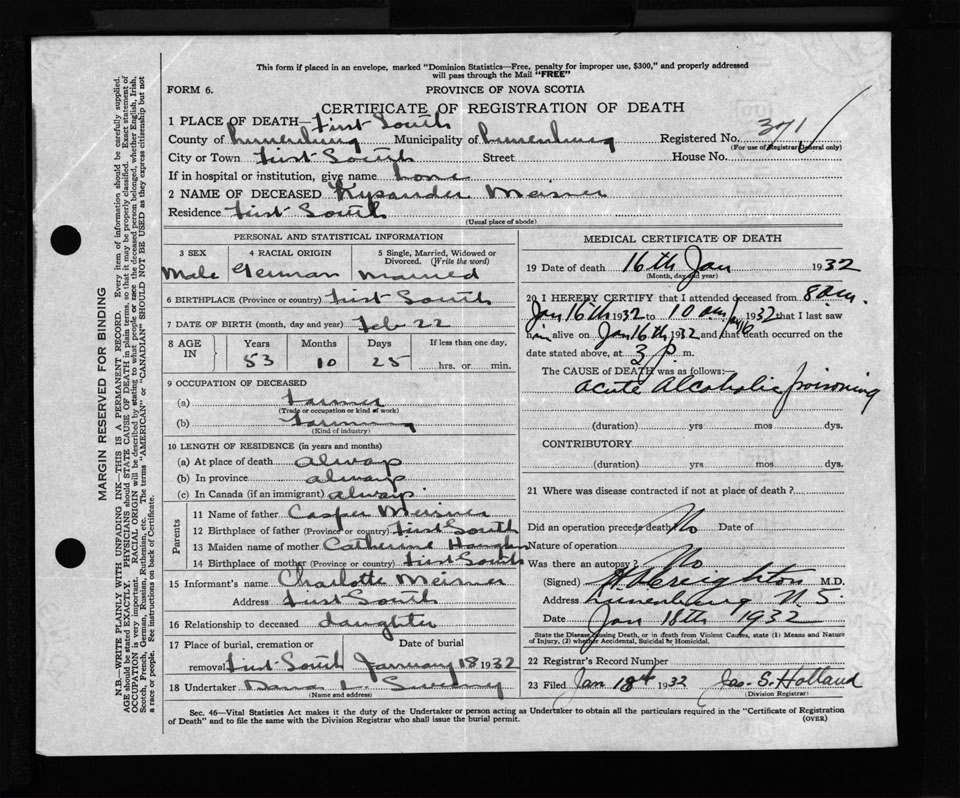 This form if placed in an envelope, marked "Dominion Statistics—Free, penalty for improper use, $300," and properly addressed
will pass through the Mail "FREE"
FORM 6.
PROVINCE OF NOVA SCOTIA
CERTIFICATE OF REGISTRATION OF DEATH
1 PLACE OF DEATH— First South
County of Lunenburg Municipality of Lunenburg Registered No. 371
(For use of Registrar General only)
City or Town First South Street House No.
If in hospital or institution, give name home
2 NAME OF DECEASED Kysander Meisner
Residence First South
(Usual place of abode)
PERSONAL AND STATISTICAL INFORMATION
3 SEX 4 RACIAL ORIGIN 5 Single, Married, Widowed or
Divorced. (Write the word)
Male German Married
6 BIRTHPLACE (Province or country) First South
7 DATE OF BIRTH (month, day and year) Feb 22
8 AGE IN Years Months Days If less than one day.
53 10 25 hrs. or min.
9 OCCUPATION OF DECEASED
(a) Farmer
(Trade or occupation or kind of work)
(b) Farming
(Kind of industry)
10 LENGTH OF RESIDENCE (in years and months)
(a) At place of death always
(b) In province always
(c) In Canada (if an immigrant) always
Parents
11 Name of father Casper Meisner
12 Birthplace of father (Province or country) First South
13 Maiden name of mother Catherine
14 Birthplace of mother (Province or country) First South
15 Informant's name Charlotte Meisner
Address First South
16 Relationship to deceased daughter
17 Place of burial, cremation or Date of burial
removal First South January 18 1932
18 Undertaker
(Name and address)
MEDICAL CERTIFICATE OF DEATH
19 Date of death 16th Jan 1932
(Month, day and year)
20 I HEREBY CERTIFY that I attended deceased from 8 a.m.
Jan 16th 1932 to 10 am Jan 16 1932 that I last saw
him alive on Jan 16th 1932 and that death occurred on the
date stated above, at 3 p. m.
The CAUSE OF DEATH was as follows:—
acute Alcoholic poisoning
(duration) yrs mos dys.
CONTRIBUTORY
(duration) yrs mos dys.
21 Where was disease contracted if not at place of death?
Did an operation precede death No Date of
Nature of operation
Was there an autopsy? No
(Signed) Creighton M.D.
Address Lunenburg N.S.
Date Jan 18th 1932
State the Disease causing Death, or in death from Violent Causes, state (1) Means and Nature
of Injury, (2) whether Accidental, Suicidal or Homicidal.
22 Registrar's Record Number
23 Filed Jan 18th 1932 Jas. S. Holland
(Division Registrar)
Sec. 46—Vital Statistics Act makes it the duty of the Undertaker or person acting as Undertaker to obtain all the particulars required in the "Certificate of Registration
of Death" and to file the same with the Division Registrar who shall issue the burial permit.
(OVER)
MARGIN RESERVED FOR BINDING
N.B.—WRITE PLAINLY WITH UNFADING INK—THIS IS A PERMANENT RECORD. Every item of information should be carefully supplied.
AGE should be stated EXACTLY. PHYSICIANS should STATE CAUSE OF DEATH in plain terms, so that it may be properly classified. Exact statement of
OCCUPATION is very important. RACIAL ORIGIN will be described by stating to what people or race the deceased person belonged, whether English, Irish,
Scotch, French, German, Russian, Ruthenian, etc. The terms "AMERICAN" or "CANADIAN" SHOULD NOT BE USED as they express citizenship but not
a race or people. See instructions on back of Certificate.